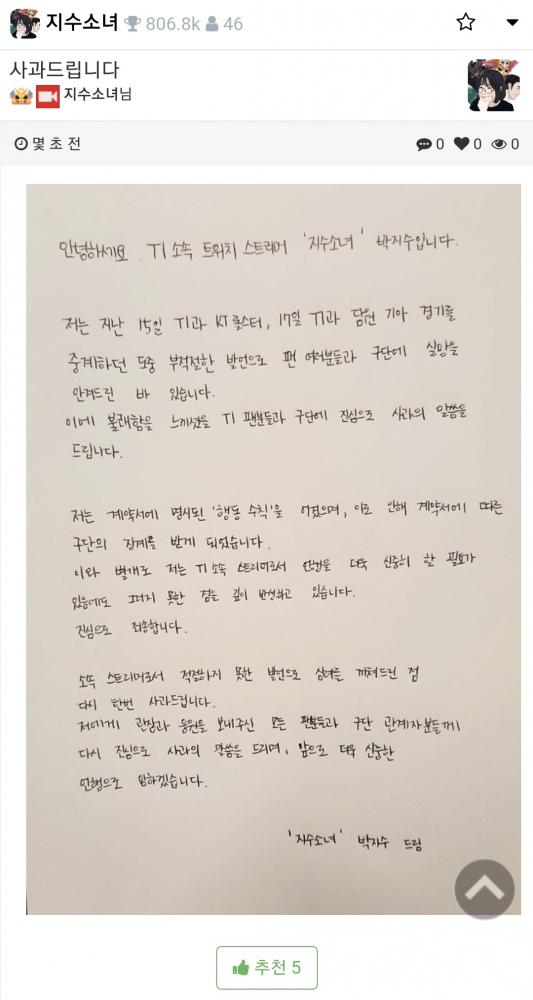 지수소녀 806.8k 46
사과드립니다
지수소녀님
몇 초 전 0 0 0
안녕하세요 T1 소속 트위치 스트리머 '지수소녀' 박지수입니다.
저는 지난 15일 T1과 KT롤스터, 17일 T1과 담원 기아 경기를
중계하던 도중 부적절한 발언으로 팬 여러분들과 구단에 실망을
안겨드린 바 있습니다.
이에 불쾌함을 느끼셨을 T1 팬분들과 구단에 진심으로 사과의 말씀을
드립니다.
저는 계약서에 명시된 '행동 수칙'을 어겼으며, 이로 인해 계약서에 따른
구단의 징계를 받게 되었습니다.
이와 별개로 저는 T1 소속 스트리머로서 언행을 더욱 신중히 할 필요가
있음에도 그러지 못한 점을 깊이 반성하고 있습니다.
진심으로 죄송합니다.
소속 스트리머로서 적절하지 못한 발언으로 심려를 끼쳐드린 점
다시 한번 사과드립니다.
저에게 관심과 응원을 보내주신 모든 팬분들과 구단 관계자분들께
다시 진심으로 사과의 말씀을 드리며, 앞으로 더욱 신중한
언행으로 임하겠습니다.
'지수소녀' 박지수 드림
추천 5